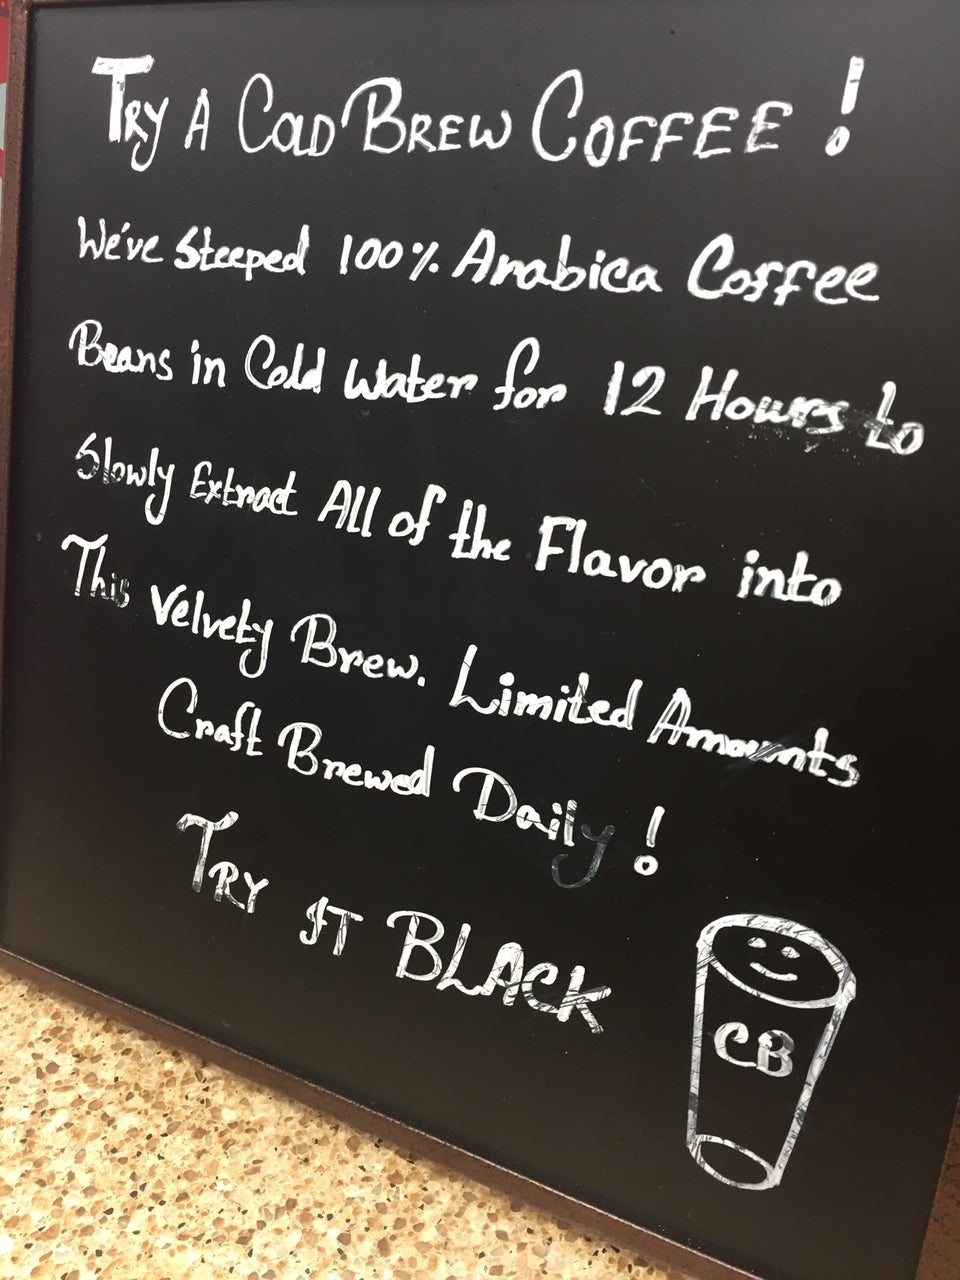 Try A Cold Brew Coffee !
We've Steeped 100% Arabica Coffee
Beans in Cold Water for 12 Hours to
Slowly Extract All of the Flavor into
This Velvety Brew. Limited Amounts
Craft Brewed Daily !
Try it BLACK
CB